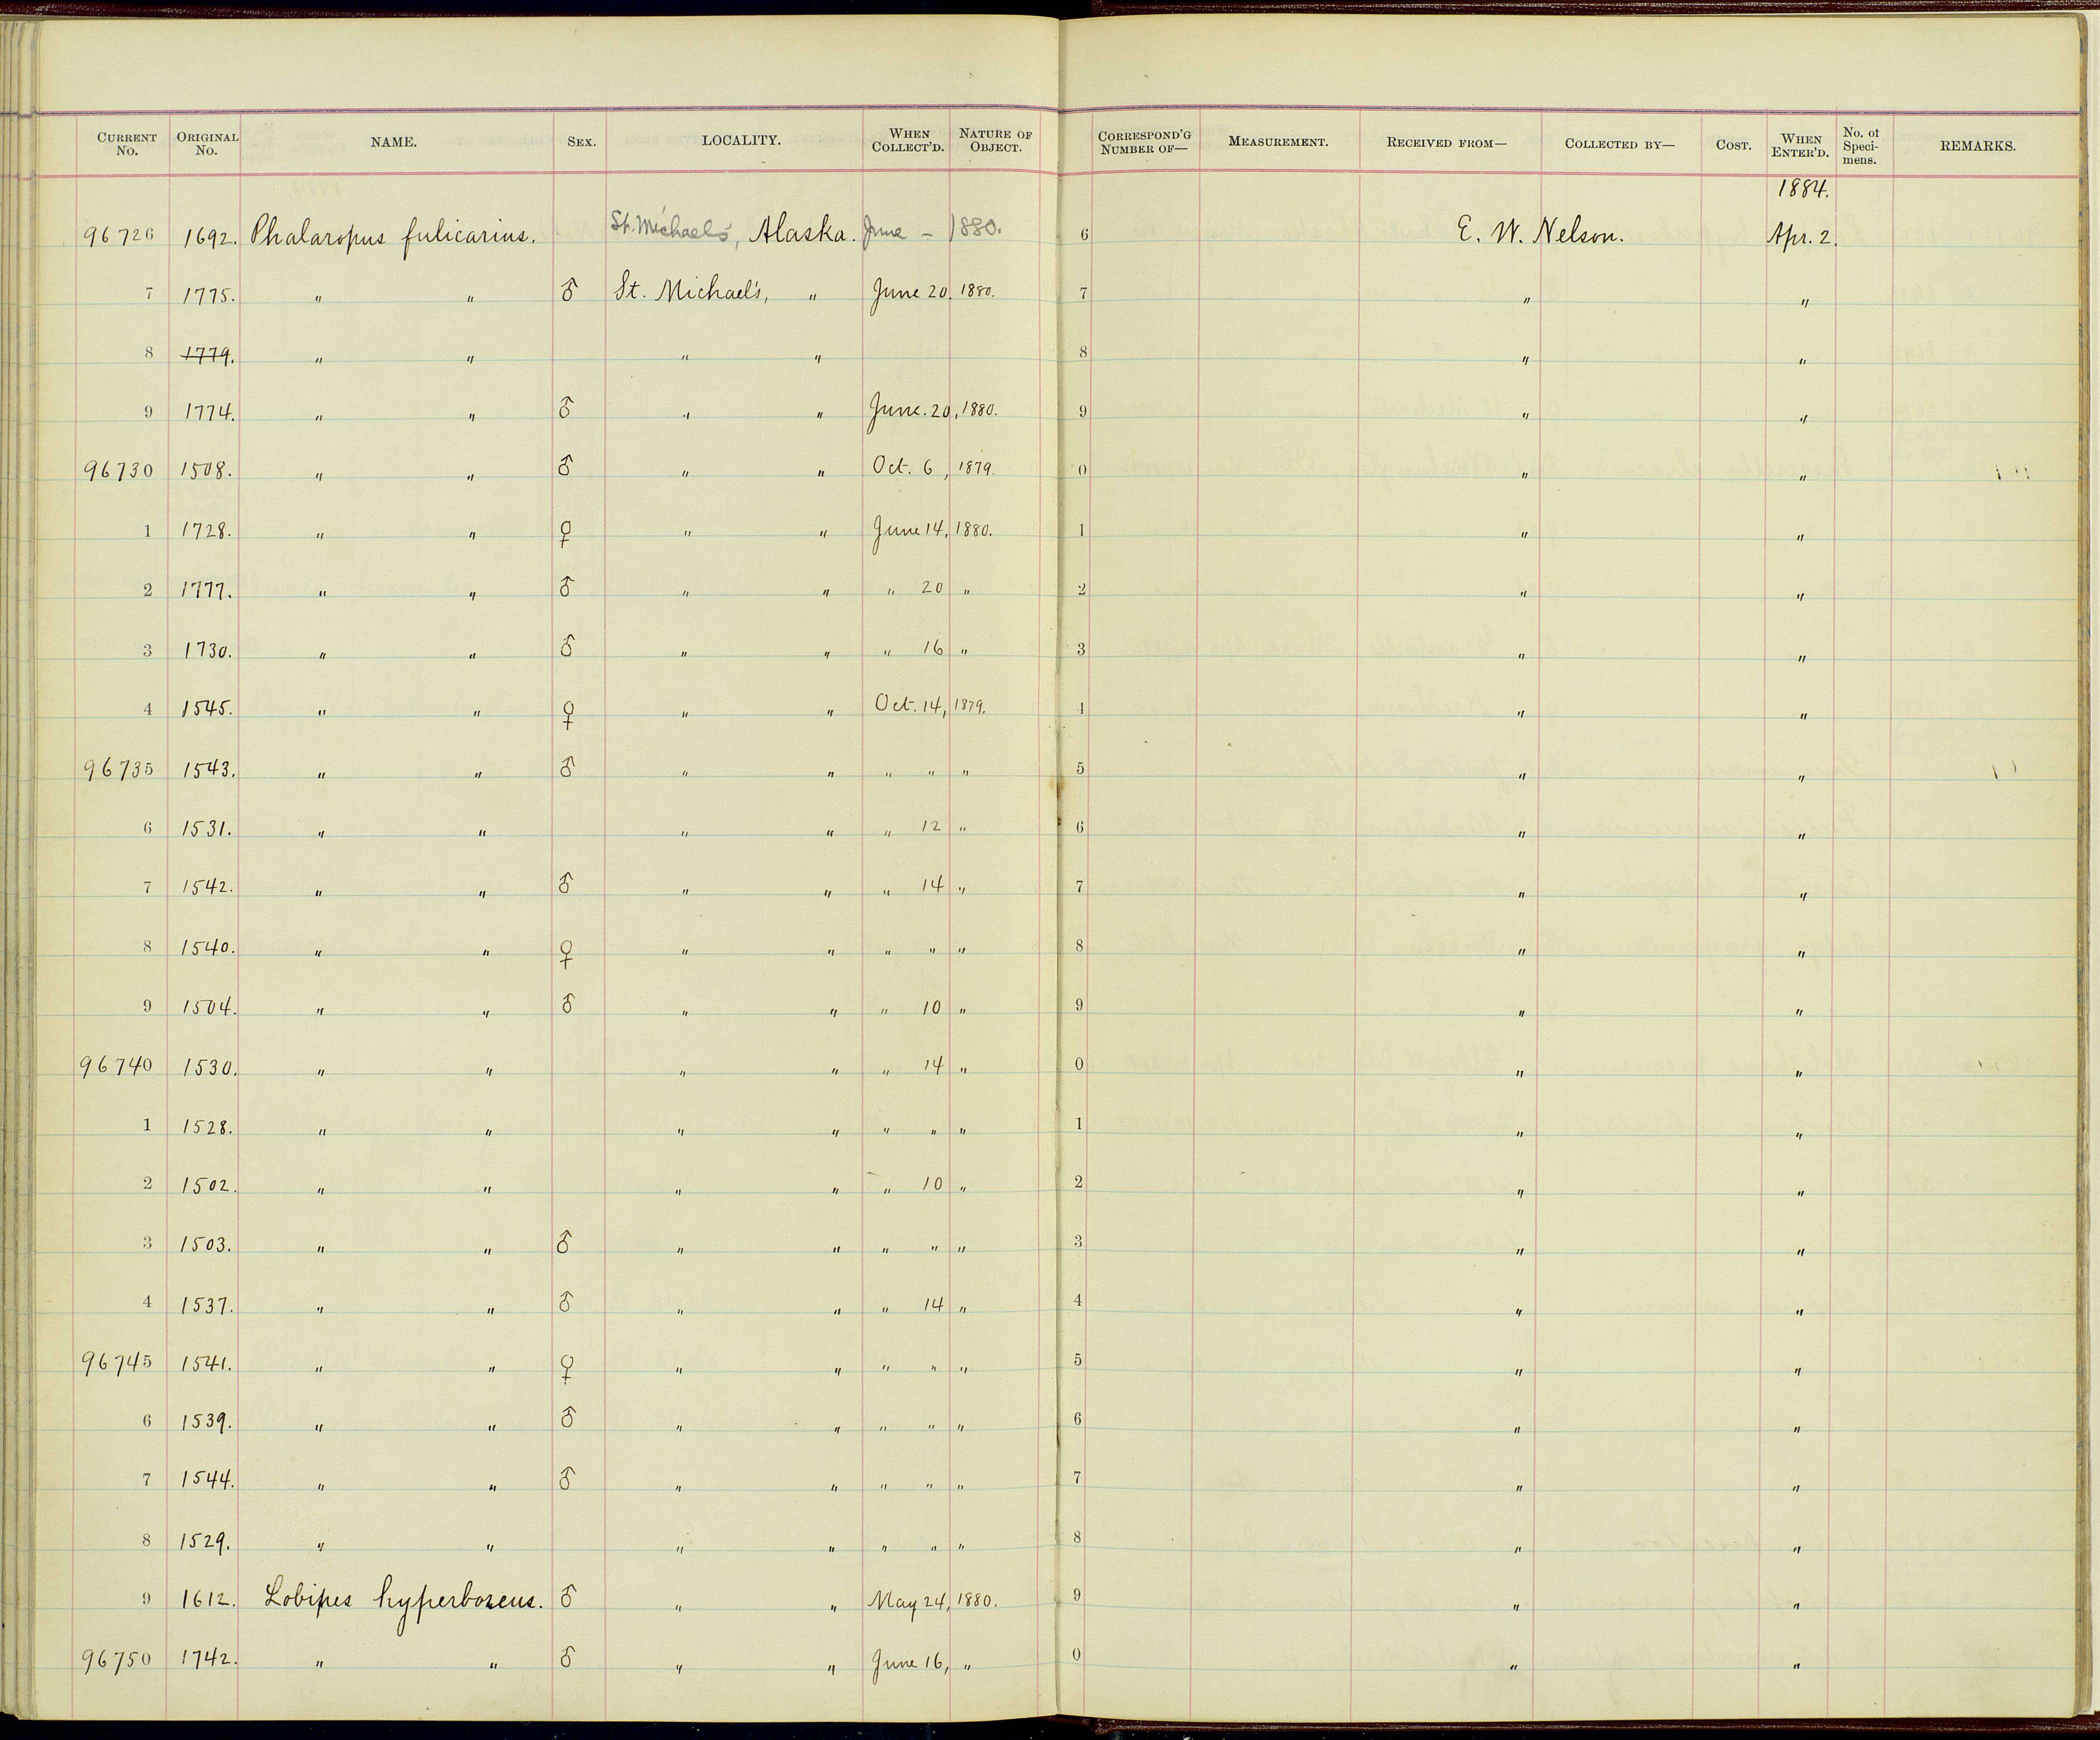 CURRENT No. ORIGINAL No. NAME. SEX. LOCALITY. WHEN COLLECT'D. NATURE OF OBJECT. CORRESPOND'G NUMBER OF— MEASUREMENT. RECEIVED FROM— COLLECTED BY— COST. WHEN ENTER'D. No. of Speci-mens. REMARKS.
1884.
96726 1692. Phalaropus fulicarius. St. Michael's, Alaska. June – 1880. 6 E. W. Nelson. Apr. 2.
7 1775. " " ♂ St. Michael's, " June 20, 1880. 7 " "
8 1779. " " " " 8 " "
9 1774. " " ♂ " " June. 20, 1880. 9 " "
96730 1508. " " ♂ " " Oct. 6, 1879. 0 " "
1 1728. " " ♀ " " June 14, 1880. 1 " "
2 1777. " " ♂ " " " 20 " 2 " "
3 1730. " " ♂ " " " 16 " 3 " "
4 1545. " " ♀ " " Oct. 14, 1879. 4 " "
96735 1543. " " ♂ " " " " " 5 " "
6 1531. " " " " " 12 " 6 " "
7 1542. " " ♂ " " " 14 " 7 " "
8 1540. " " ♀ " " " " " 8 " "
9 1504. " " ♂ " " " 10 " 9 " "
96740 1530. " " " " " 14 " 0 " "
1 1528. " " " " " " " 1 " "
2 1502. " " " " " 10 " 2 " "
3 1503. " " ♂ " " " " " 3 " "
4 1537. " " ♂ " " " 14 " 4 " "
96745 1541. " " ♀ " " " " " 5 " "
6 1539. " " ♂ " " " " " 6 " "
7 1544. " " ♂ " " " " " 7 " "
8 1529. " " " " " " " 8 " "
9 1612. Lobipes hyperboreus. ♂ " " May 24, 1880. 9 " "
96750 1742. " " ♂ " " June 16, " 0 " "